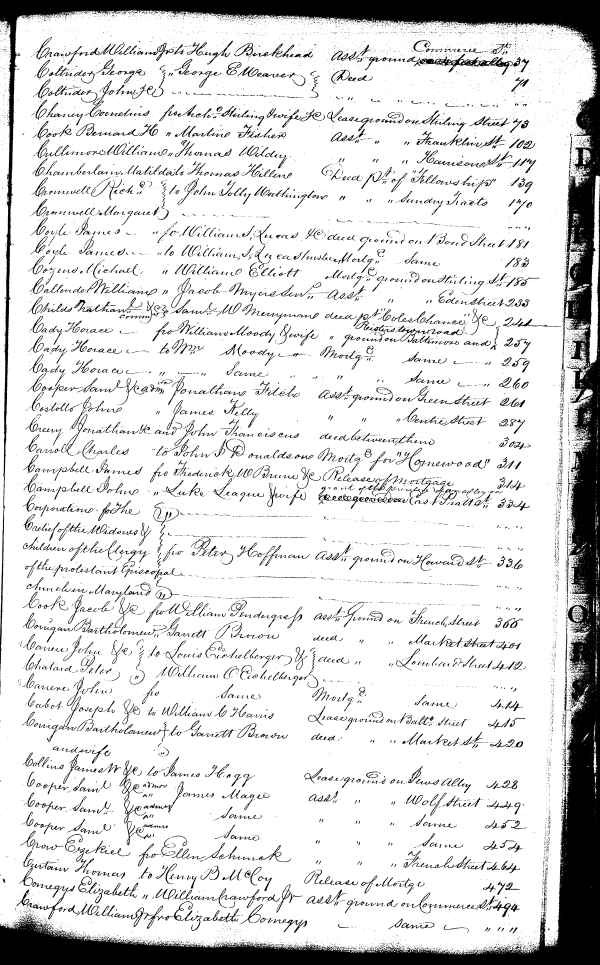 Crawford William Jr to Hugh Birckhead Asst. ground Commerce St. 37
Cottrider George " George E Weaver Deed 71
Cottrider John Jr " " " " "
Chaney Cornelius fro Archd. Stirling & wife &c Lease ground on Stirling Street 73
Cook Bernard H " Martine Fisher Asst. " " Franklin St. 102
Cullimore William " Thomas Wildey " " " Harrison St. 117
Chamberlain Matilda to Thomas Hillen Deed pt. of "Fellowship" 139
Cromwell Richd. to John Tolly Worthington " " " Sundry Tracts 170
Cromwell Margaret " " "
Coyle James " fro William F. Lucas &c deed ground on Bond Street 181
Coyle James to William F. Lucas Mortge. same 183
Cozens Michael " William Elliott Mortge. ground on Stirling St. 185
Callender William " Jacob Myers Senr. Asst. " " Eden Street 233
Childs Nathanl. &c Saml. W Merryman deed pt. "Coles Chance" &c 241
Cady Horace fro William Moody & wife " ground on Baltimore and Reisterstown road 257
Cady Horace to Wm. Moody " Mortge. same " 259
Cady Horace " " same " " " same " 260
Cooper Saml. &c admr. Jonathan Fitch Asst. ground on Green Street 261
Costollo John " James Kelly " " " Centre Street 287
Creery Jonathan &c and John Franciscus deed between them 304
Carroll Charles to John I Donaldson Mortge. for "Homewood" 311
Campbell James fro Frederick W Brune &c Release of Mortgage 314
Campbell John " Luke League & wife East Pratt St. 334
Corporation for the " " "
relief of the Widows &
children of the Clergy fro Peter Hoffman Asst. ground on Howard St. 336
of the protestant Episcopal
church in Maryland " " "
Cook Jacob &c fro William Pendergrass asst. ground on French Street 366
Corrigan Bartholomew " Garrett Brown deed " " Market Street 401
Carrere John &c to Louis Eichelberger & deed " " Lombard Street 412
Chatard Peter " William O Eichelberger " " "
Carrere John fro same Mortge. same 414
Cabot Joseph &c to William C Harris Lease ground on Balto. Street 415
Corrigan Bartholomew to Garrett Brown deed " " Market St. 420
and wife
Collins James W &c to James Hogg Lease ground on Jews Alley 428
Cooper Saml. &c admr. James Magee asst. " " Wolf Street 449
Cooper Saml. &c admr. same " " " same 452
Cooper Saml. &c admr. same " " " same 454
Craw Ezekiel fro Ellen Schunck " " " French Street 464
Curtain Thomas to Henry B. McCoy Release of Mortge 472
Comegys Elizabeth " William Crawford Jr Asst. ground on Commerce St. 494
Crawford William Jr fro Elizabeth Comegys same " " "